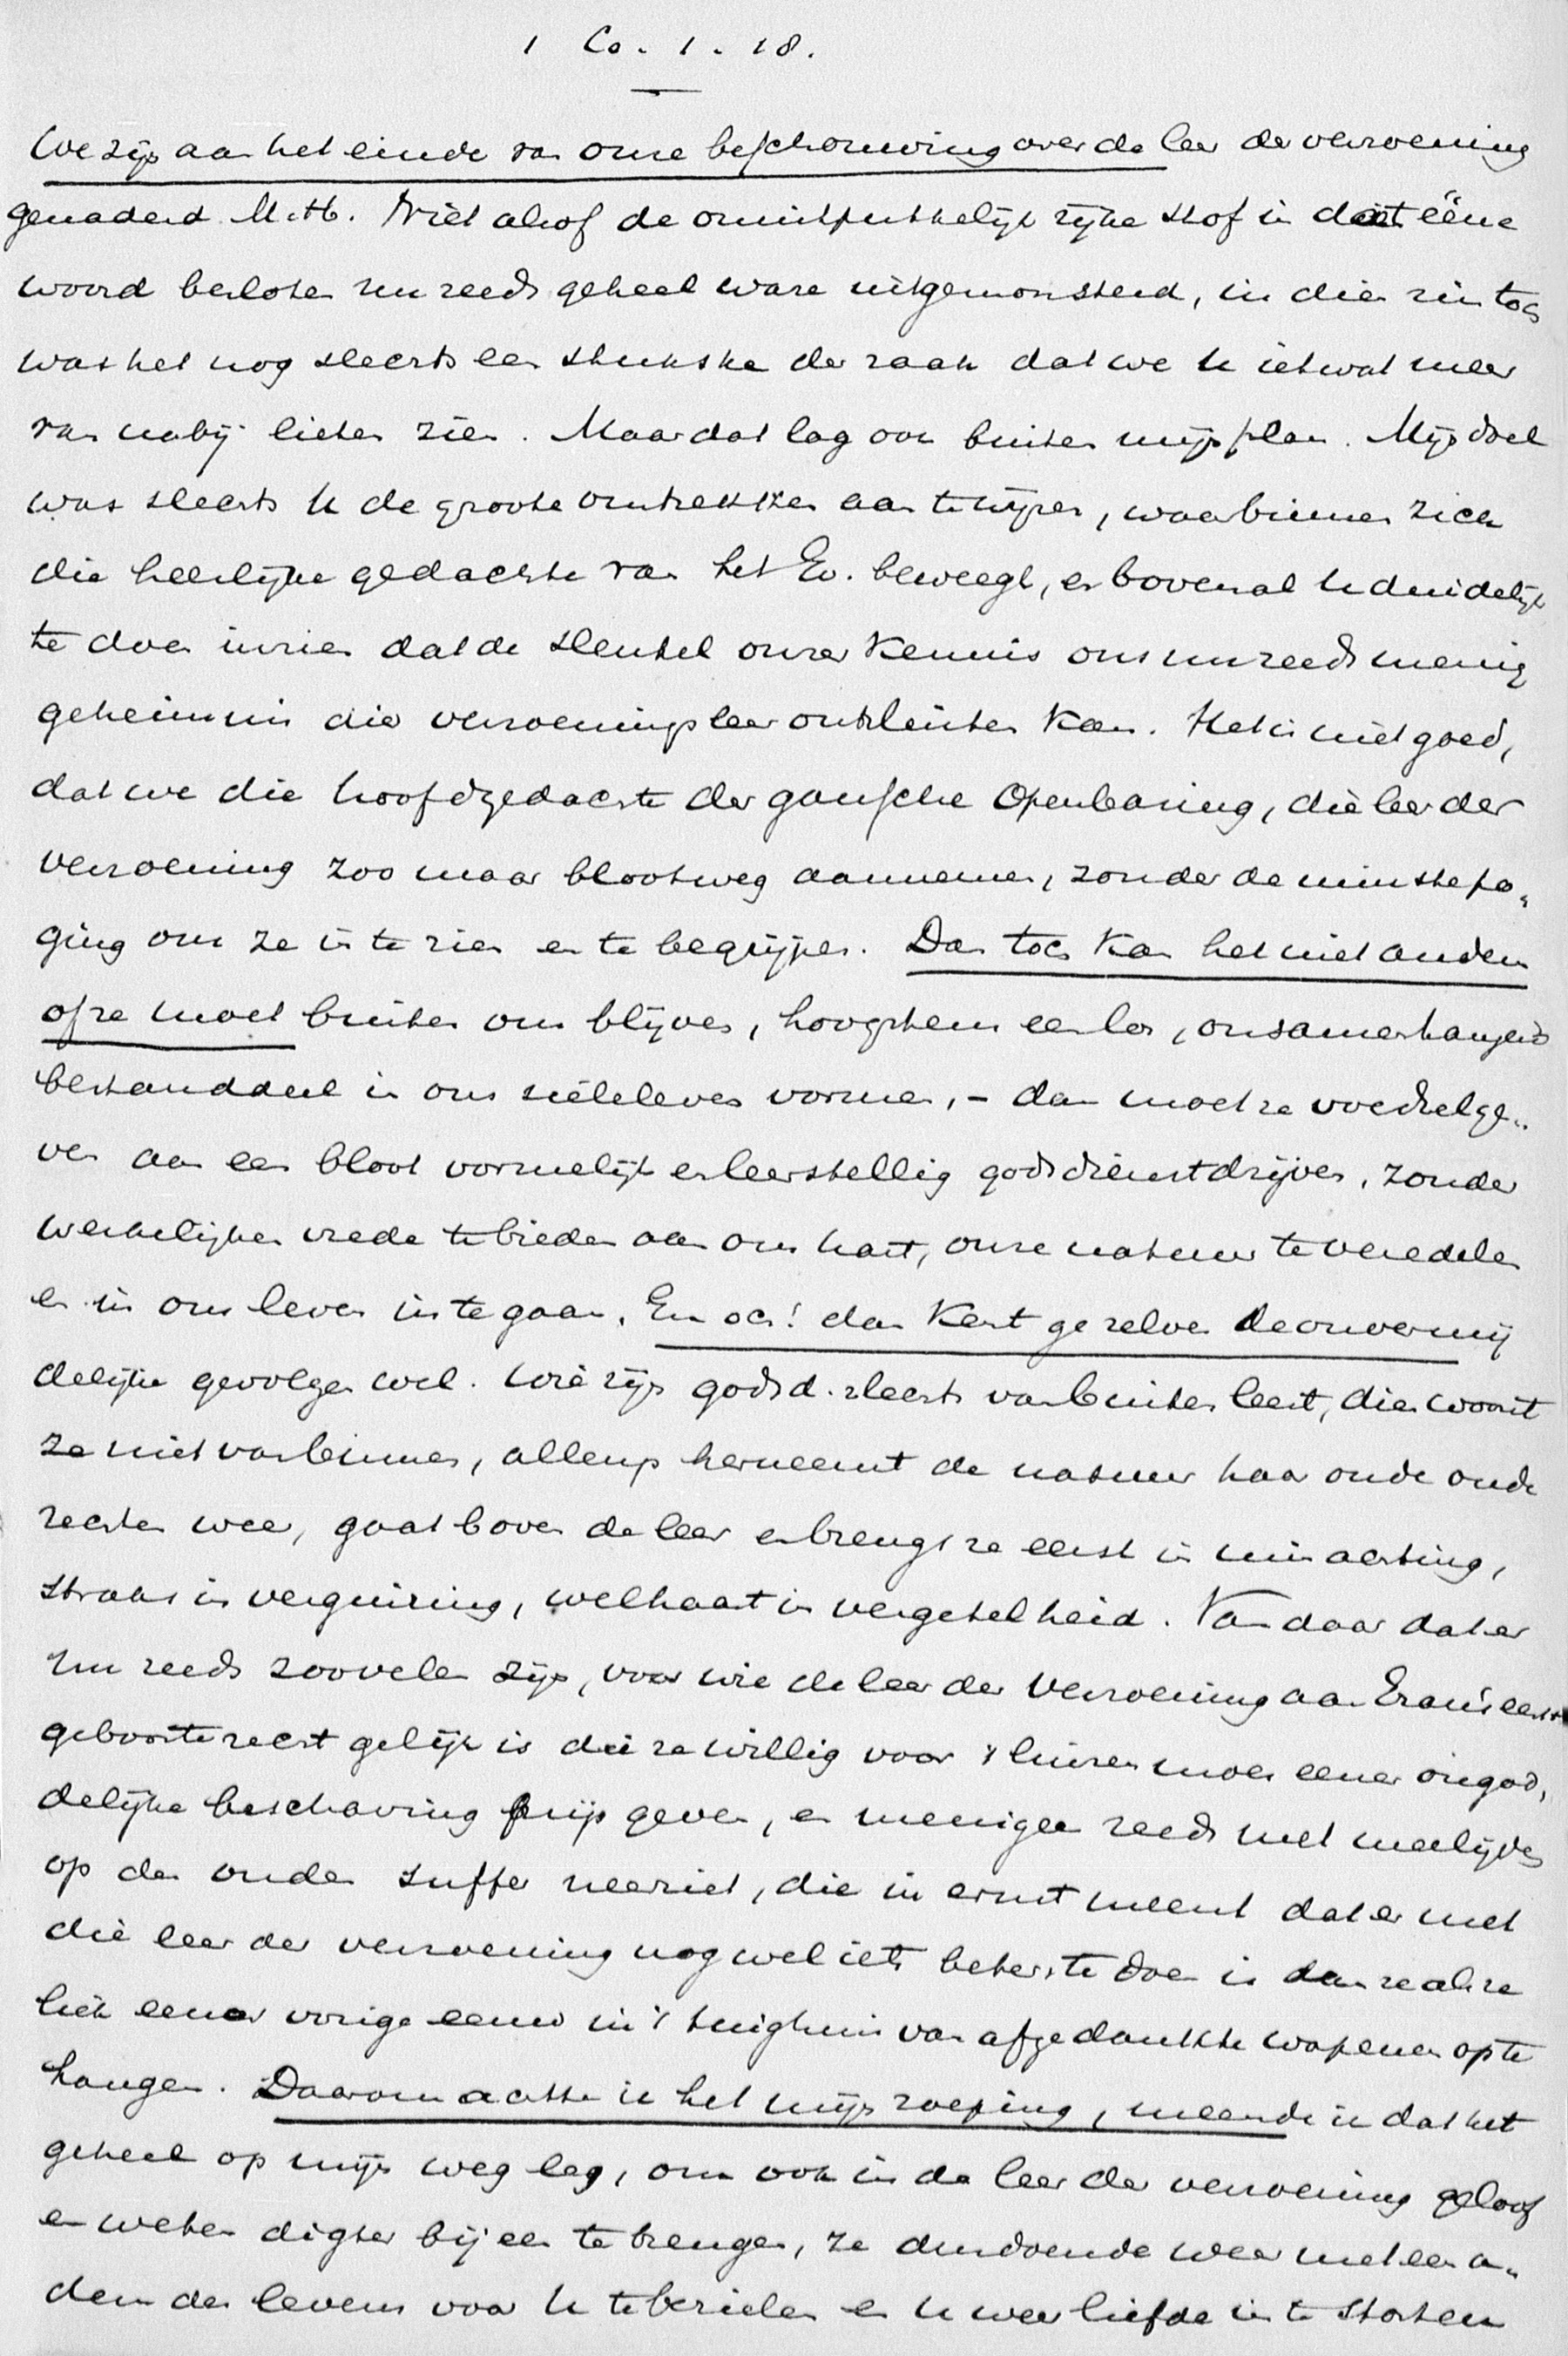 1 Co. 1. 18.
We zijn aan het einde van onze beschouwing over de leer der verzoening
genaderd M. H. Niet alsof de onuitputtelijk rijke stof in dat ééne
woord besloten nu reeds geheel ware uitgemonsterd, in dien zin toch
was het nog slechts een stukske der zaak dat we U ietwat meer
van nabij lieten zien. Maar dat lag ook buiten mijn plan. Mijn doel
was slechts U de groote omtrekken aan te wijzen, waarbinnen zich
die heerlijke gedachte van het Ev. beweegt, en bovenal U duidelijk
te doen inzien dat de sleutel onzer kennis ons nu reeds menig
geheimnis dier verzoeningsleer ontsluiten kan. Het is niet goed,
dat we die hoofdgedachte der gansche Openbaring, die leer der
verzoening zoo maar blootweg aannemen, zonder de minste po„
ging om ze in te zien en te begrijpen. Dan toch kan het niet anders
of ze moet buiten ons blijven, hoogstens een los, onsamenhangend
bestanddeel in ons zieleleven vormen, – dan moet ze voedsel ge„
ven aan een bloot vormelijk en leerstellig godsdienstdrijven, zonder
werkelijken vrede te bieden aan ons hart, onze natuur te veredelen
en in ons leven in te gaan. En och! dan kent ge zelven de onvermij
delijke gevolgen wel. Wie zijn godsd. slechts van buiten leert, dien woont
ze niet van binnen, allengs herneemt de natuur haar oude oude
rechten weer, gaat boven de leer en brengt ze eerst in minachting,
straks in verguizing, welhaast in vergetelheid. Van daar dat er
nu reeds zoovelen zijn, voor wie de leer der verzoening aan Ezau's eerst
geboorterecht gelijk is die ze willig voor 't linzenmoes eener ongod„
delijke beschaving prijs geven, en menigeen reeds met meelijden
op den ouden suffer neerziet, die in ernst meent dat er met
die leer der verzoening nog wel iets beters te doen is dan ze als re
liek eener vorige eeuw in 't tuighuis van afgedankte wapenen op te
hangen. Daarom achtte ik het mijn roeping, meende ik dat het
geheel op mijn weg lag, om ook in de leer der verzoening geloof
en weten digter bij een te brengen, ze dusdoende weer met een a„
dem des levens voor U te bezielen en U weer liefde in te storten